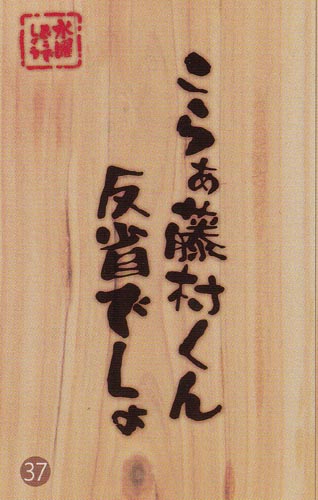 水曜
どうで
しょう
こらぁ藤村くん
反省でしょ
37